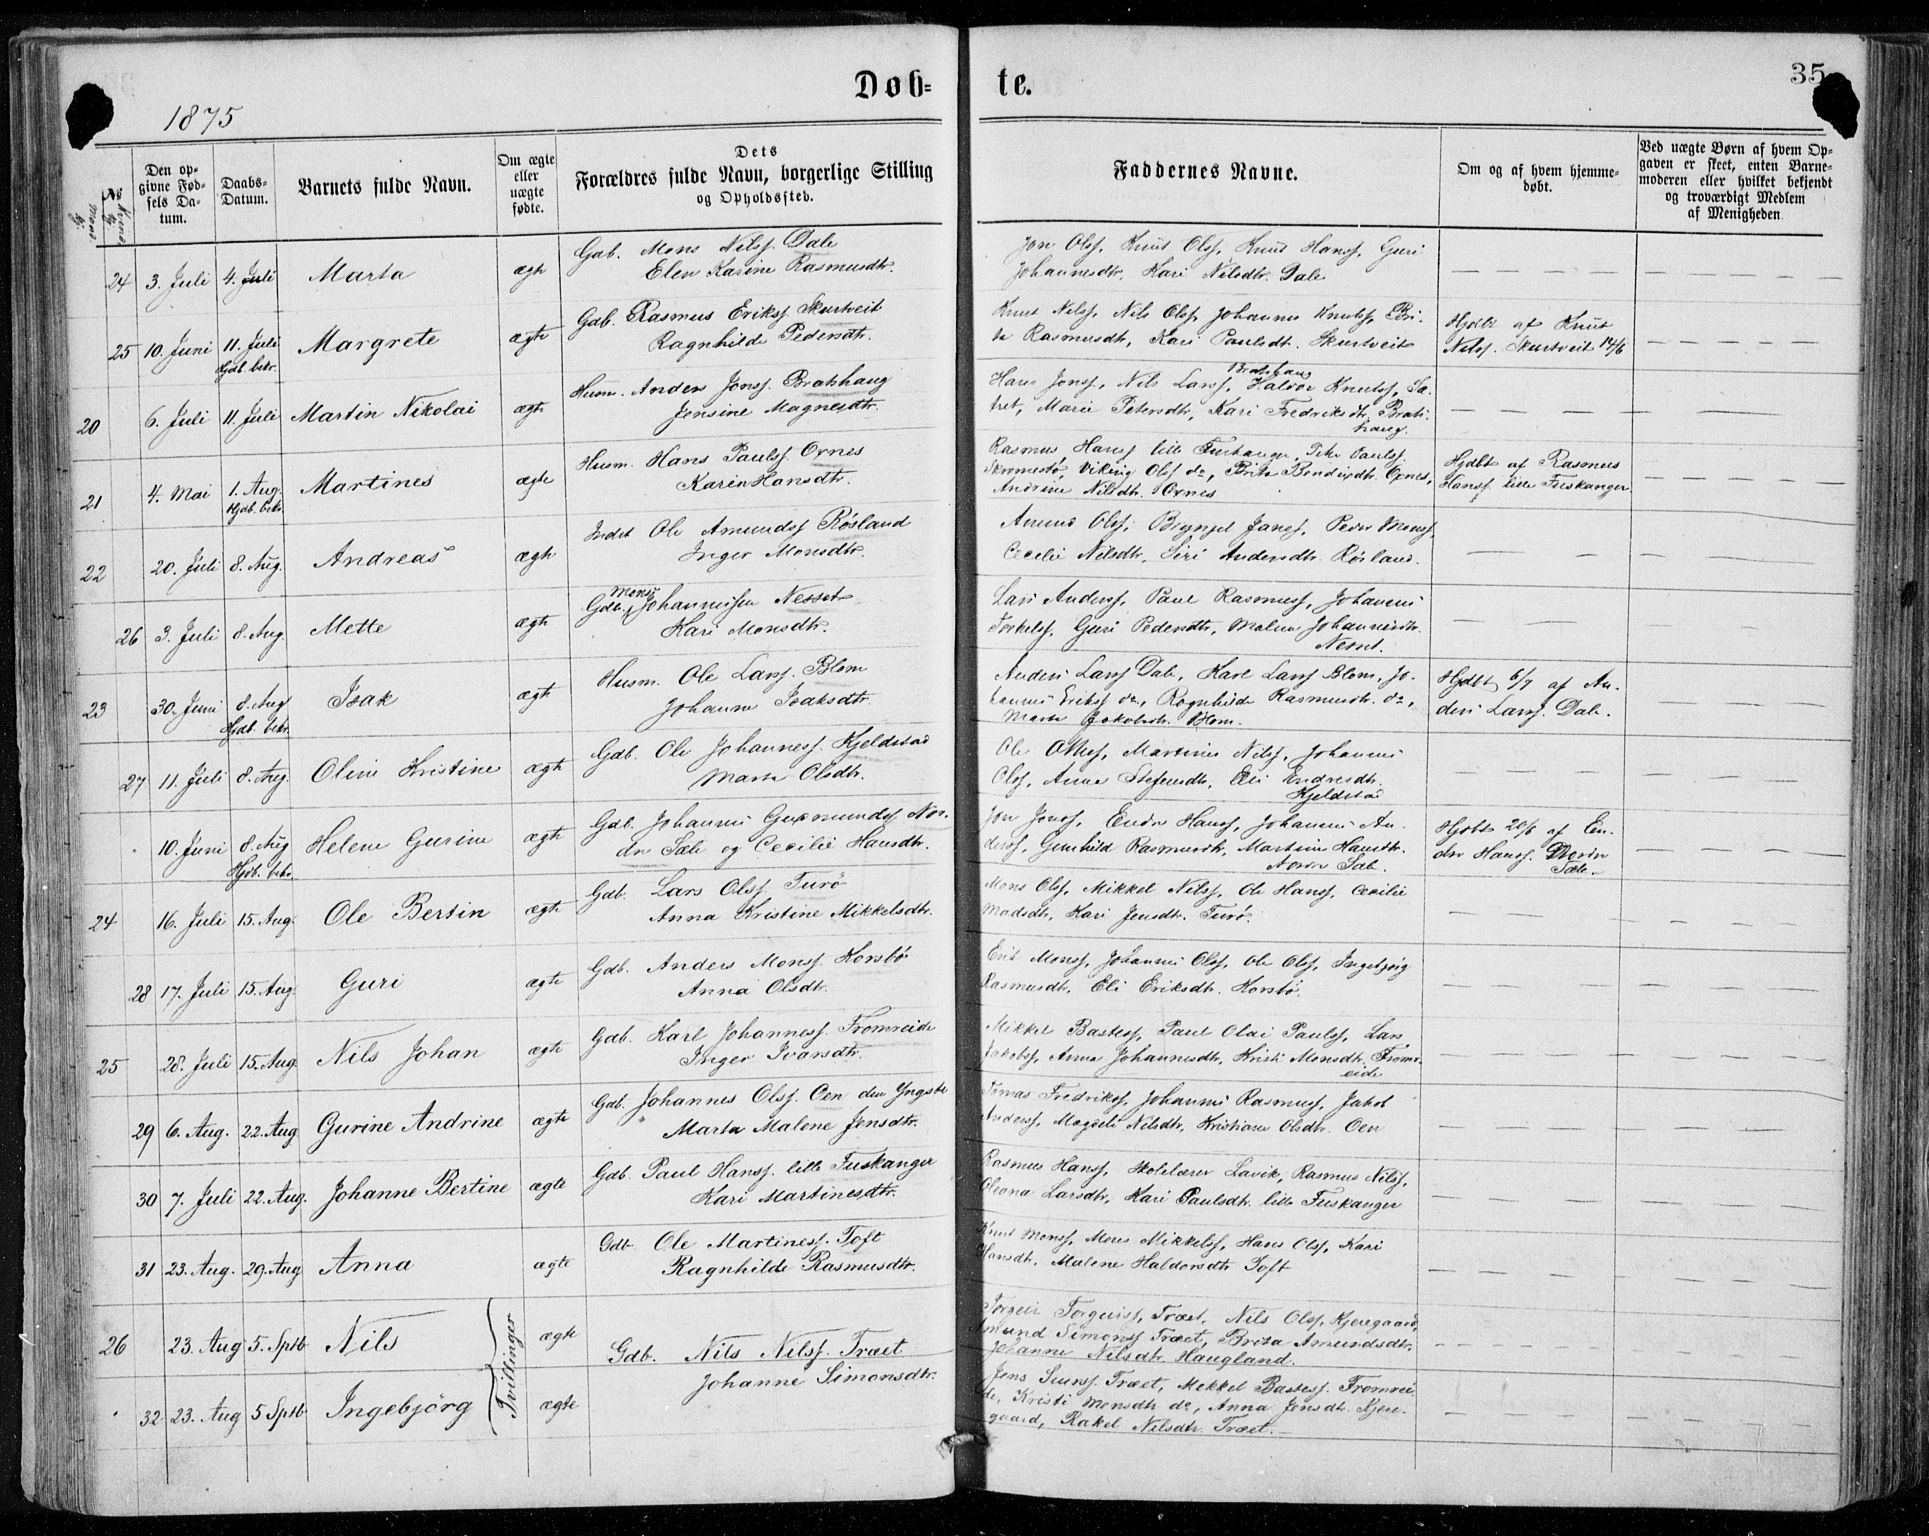 Døb=
te.
35
1875
No
Mænd kj.
Kvind kj.
Den op-
givne Fød-
sels Da-
tum.
Daabs-
Datum.
Barnets fulde Navn.
Om ægte
eller
uægte
fødte.
Dets
Forældres fulde Navn, borgerlige Stilling
og Opholdssted.
Faddernes Navne.
Om og af hvem hjemme-
døbt.
Ved uægte Børn af hvem Op-
gaven er skeet, enten Barne-
moderen eller hvilket bekjendt
og troværdigt Medlem
af Menigheden
24 3. Juli 4. Juli Marta ægte
Gab. Mons Nilss. Dale
Elen Karine Rasmusdtr.
Jon Olss, Knut Olss, Knut Hanss, Guri
Johannesdtr. Kari Nilsdtr. Dale
25 10. Juni 11. Juli Margrete ægte
Hjdb. bekr.
Gdb. Rasmus Erikss Skurtveit
Ragnhilde Pedersdtr.
Knut Nilss, Nils Olss, Johannes Knutss, Bri-
te Rasmusdtr, Kari Paulsdt. Skurtveit
Hjdbt af Knut
Nilss. Skurtveit 14/6
20 6. Juli 11. Juli Martin Nikolai ægte
Husm. Anders Jonss. Bratshaug
Jensine Magnesdtr.
Hans Jonss, Nils Larss, Bratshaug Haldor Knutss, Sæ-
tret, Marie Petersdtr, Kari Fredriksdtr. Brats-
haug.
21 4. Mai 1. Aug. Martines ægte
Hjdb. bekr.
Husm. Hans Paulss. Ornes
Karen Hansdtr.
Rasmus Hanss lille Fuskanger, Peter Paulss.
Skromestø, Viking Olss do, Brita Bendixdtr. Ornes,
Andrine Nilsdtr. Ornes
Hjdbt af Rasmus
Hanss. lille Fuskanger
22 20. Juli 8. Aug. Andreas ægte
Indst Ole Amundss Røsland
Inger Monsdtr.
Amund Olss, Brynjel Janss, Peder Monss,
Cecilie Nilsdtr, Siri Andersdtr. Røsland.
26 3. Juli 8. Aug. Mette ægte
Gdb. Mons Johannessen Nesset
Kari Monsdtr.
Lars Anderss, Paul Rasmuss, Johannes
Torkelss, Guri Pedersdtr, Malene Johannesdtr.
Nesset.
23 30. Juni 8. Aug Isak ægte
Hjdb. bekr.
Husm. Ole Larss. Blom
Johanne Isaksdtr.
Anders Larss Dale, Karl Larss Blom, Jo-
hannes Erikss do, Ragnhilde Rasmusdtr. do,
Marta Jakobsdtr. Blom.
Hjdbt 6/7 af An-
ders Larss. Dale.
27 11. Juli 8. Aug. Oline Kristine ægte
Gdb. Ole Johanness. Kjeldstad
Marta Olsdtr.
Ole Olss, Martines Nilss, Johannes
Olss, Anna Stefensdtr, Eli Endresdtr.
Kjeldstad
10. Juni 8. Aug Helene Gurine ægte
Hjdb. bekr.
Gdb. Johannes Gudmundss Nor-
dre Sæle og Cecilie Hansdtr.
Jon Jonss, Endre Hanss, Johannes An-
derss, Gunhild Rasmusdtr, Martine Hansdtr.
Nordre Sæle.
Hjdbt 20/6 af En-
dre Hanss. Nordre
Sæle.
24 16. Juli 15. Aug. Ole Bertin ægte
Gdb. Lars Olss Turø
Anna Kristine Mikkelsdtr.
Mons Olss, Mikkel Nilss, Ole Hanss, Cecilie
Madsdtr, Kari Jensdtr. Turø.
28 17. Juli 15. Aug. Guri ægte
Gdb. Anders Monss. Korsbø
Anna Olsdtr.
Erik Monss, Johannes Olss, Ole Olss, Ingebjørg
Rasmusdtr, Eli Eriksdtr. Korsbø.
25 28. Juli 15. Aug. Nils Johan ægte
Gdb. Karl Johanness. Fromreide
Inger Ivarsdtr.
Mikkel Bastess, Paul Olai Paulss, Lars
Jakobss, Anna Johannesdtr, Kristi Monsdtr. From-
reide
29 6. Aug. 22. Aug Gurine Andrine ægte
Gdb. Johannes Olss. Oen den Yngste
Marta Malene Jensdtr.
Tomas Fredrikss, Johannes Rasmuss, Jakob
Anderss, Magdeli Nilsdtr, Kristiane Olsdtr. Oen
30 7. Juli 22. Aug. Johanne Bertine ægte
Gdb. Paul Hanss. lille Fuskanger
Kari Martinesdtr.
Rasmus Hanss, Skolelærer Lavik, Rasmus Nilss,
Oleana Larsdtr, Kari Paulsdtr. lille Fuskanger
31 23. Aug. 29. Aug Anna ægte
Gdb Ole Martiness. Toft
Ragnhilde Rasmusdtr.
Knut Monss, Mons Mikkelss, Hans Olss, Kari
Hansdtr, Malene Haldorsdtr Toft
26 23. Aug 5. Sptb Nils ægte
Tvillinger
Gdb. Nils Nilss. Træet
Johanne Simonsdtr.
Torgeir Torgeirss, Træet, Nils Olss, Kjeregaard,
Amund Simonss Træet, Brita Amundsdtr.
Johanne Nilsdtr. Haugland.
32 23. Aug 5 Sptb Ingebjörg ægte
Jens Siurss. Træet, Mikkel Bastess. Fromrei-
de, Kristi Monsdtr do, Anna Jensdtr Kjere-
gaard, Rakel Nilsdtr. Træet.